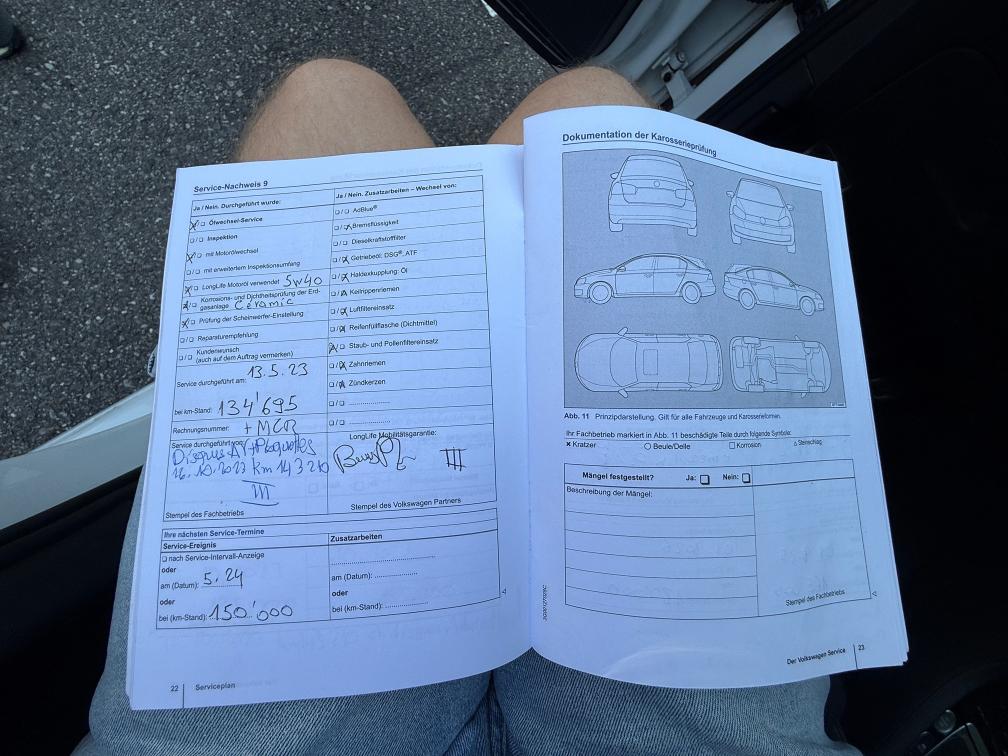 Service-Nachweis 9
Ja / Nein. Durchgeführt wurde:
Ölwechsel-Service
Inspektion
mit Motorölwechsel
mit erweitertem Inspektionsumfang
LongLife Motoröl verwendet 5W40
Korrosions- und Dichtheitsprüfung der Erd-
gasanlage Céramic
Prüfung der Scheinwerfer-Einstellung
Reparaturempfehlung
Kundenwunsch
(auch auf dem Auftrag vermerken)
Service durchgeführt am: 13.5.23
bei km-Stand: 134'695
Rechnungsnummer: + MCR
Service durchgeführt von:
Disques AV + Plaquettes
km
III
Stempel des Fachbetriebs
Ja / Nein. Zusatzarbeiten – Wechsel von:
AdBlue®
Bremsflüssigkeit
Dieselkraftstofffilter
Getriebeöl: DSG®, ATF
Haldexkupplung: Öl
Keilrippenriemen
Luftfiltereinsatz
Reifenfüllflasche (Dichtmittel)
Staub- und Pollenfiltereinsatz
Zahnriemen
Zündkerzen
LongLife Mobilitätsgarantie:
III
Stempel des Volkswagen Partners
Ihre nächsten Service-Termine
Service-Ereignis
nach Service-Intervall-Anzeige
oder
am (Datum): 5.24
oder
bei (km-Stand): 150'000
Zusatzarbeiten
am (Datum):
oder
bei (km-Stand):
22 Serviceplan
Dokumentation der Karosserieprüfung
Abb. 11 Prinzipdarstellung. Gilt für alle Fahrzeuge und Karosserieformen.
Ihr Fachbetrieb markiert in Abb. 11 beschädigte Teile durch folgende Symbole:
Kratzer Beule/Delle Korrosion Steinschlag
Mängel festgestellt? Ja: Nein:
Beschreibung der Mängel:
Stempel des Fachbetriebs
Der Volkswagen Service 23